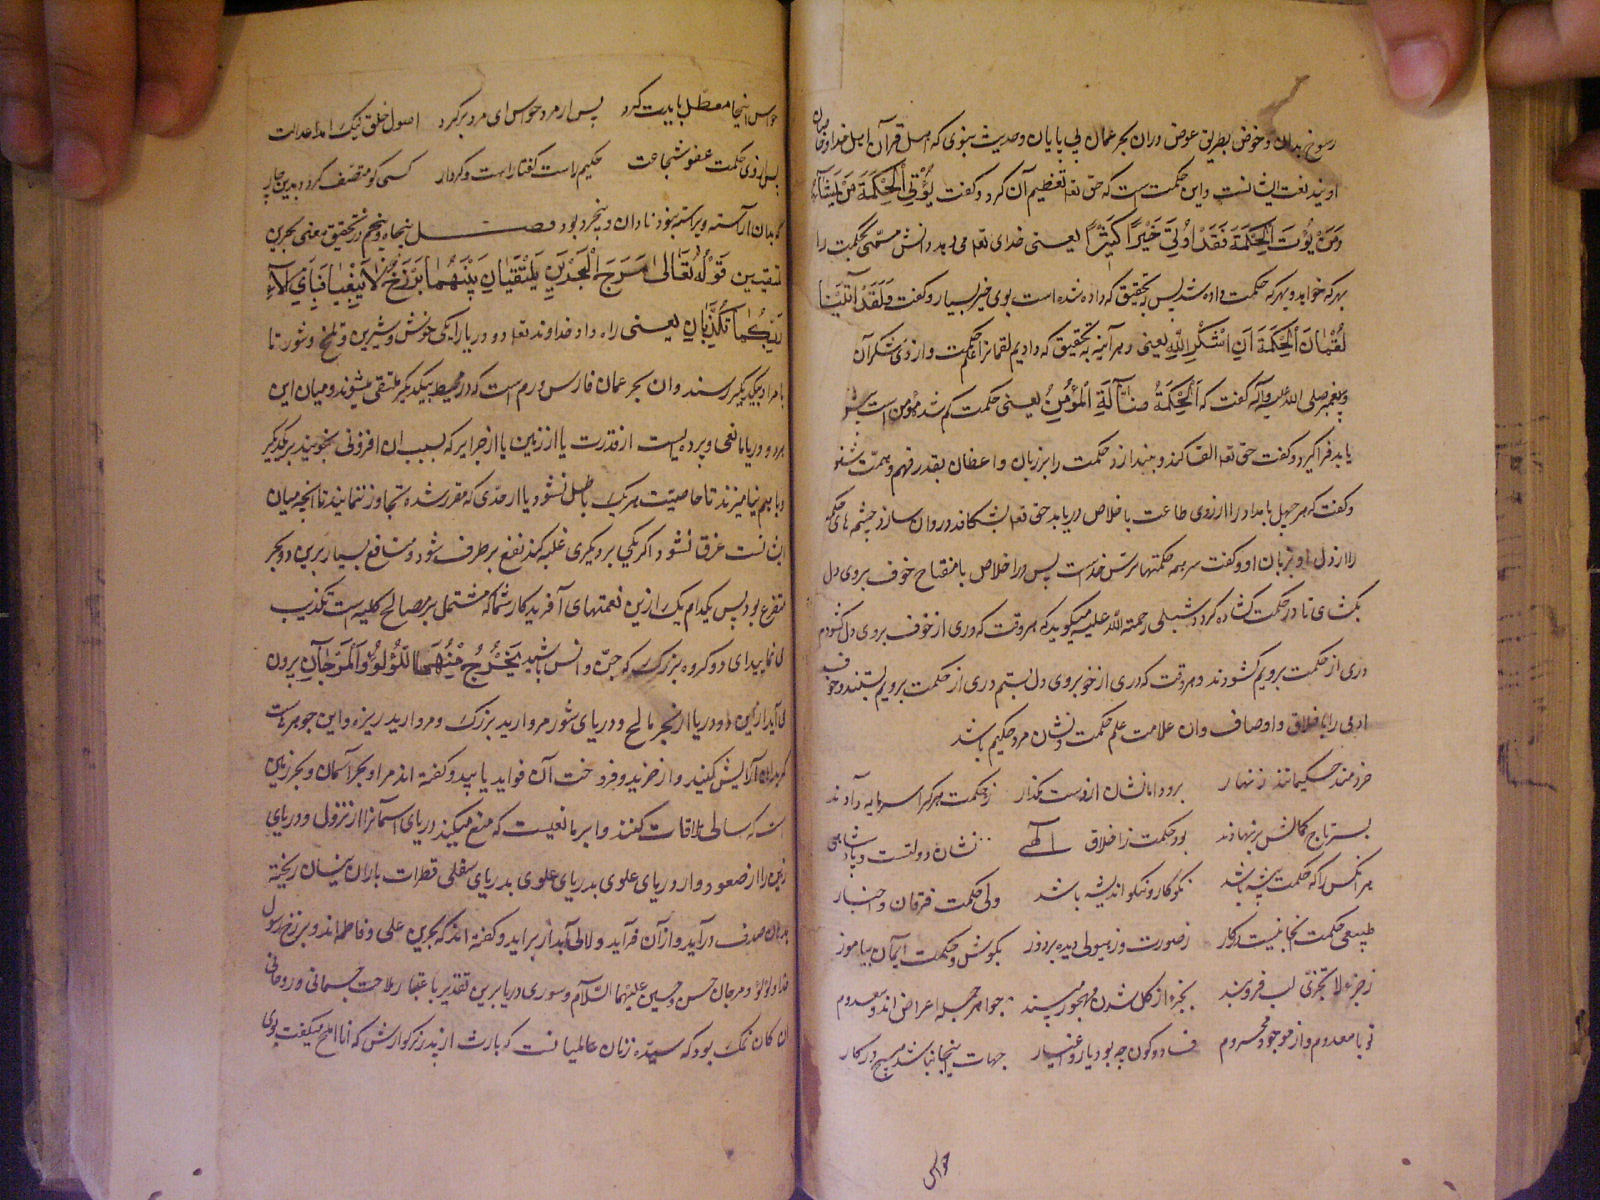 رسوخ بدان و خوض بطریق عوض دران بحر عمان بی پایان و حدیث نبوی که اهل قرآن اهل خدا و خاصان
اویند نعت ایشانست و این حکمت است که حق تعا تعظیم آن کرد و گفت یُؤْتِی الْحِکْمَةَ مَنْ یَشَآءُ
وَمَنْ یُؤْتَ الْحِکْمَةَ فَقَدْ اُوتِیَ خَیْرًا کَثِیرًا یعنی خدای تعا می دهد دانش مسمّی بحکمت را
بهر که خواهد و بهر که حکمت داده شد پس بتحقیق که داده شده است بوی خیر بسیار و گفت وَلَقَدْ اٰتَیْنَا
لُقْمَانَ الْحِکْمَةَ اَنِ اشْکُرْ لِلّٰهِ یعنی و هر آینه به تحقیق که دادیم لقمانرا علم حکمت و از وی شکر آن
و پیغمبر صلی الله علیه و آله گفت که اَلْحِکْمَةُ ضَآلَّةُ الْمُؤْمِنِ یعنی حکمت گم شده مؤمن است
یابد فراگیرد و گفت حق تعا القا کند و بیندازد حکمت را بر زبان واعظان بقدر فهم و همت شنو
و گفت که هر چهل بامداد را از روی طاعت باخلاص دریابد حق تعا بشکافد و روان سازد چشمه های حکمت
را از دل او بر زبان او و گفت سر همه حکمتها ترس خداست پس در اخلاص با مفتاح خوف بروی دل
بگشای تا در حکمت گشاده گردد شبلی رحمة الله علیه میگوید که هر وقت که دری از خوف بروی دل گشودم
دری از حکمت برویم گشودند و هر وقت که دری از خوف بروی دل بستم دری از حکمت برویم بستند و خوف
ادمی را باخلاق و اوصاف وان علامت علم حکمت و نشان مرد حکیم باشد
خردمند حکیمانند زنهار برو دامانشان از دست مگذار ز حکمت هر کرا سرمایه دادند
بسر تاج کمالش بر نهادند بود حکمت ز اخلاق الٓهی نشان دولتست و پادشاهی
هر انکس را که حکمت پیشه باشد نکوکار و نکو اندیشه باشد ولی حکمت فرقان و اخبار
طبیعی حکمت اینجا نیست در کار ز صورت وز هیولی دیده بر دوز بکوش و حکمت ایمان بیاموز
ز جزء لا تجزّی لب فروبند بجزء از کل شدن مهجور مپسند جواهر جمله اعراض اند و معدوم
تو با معدوم و از موجود محروم فساد و کون چه بود یار و اغیار جهات اینجا نباشد هیچ در کار
حواس
حواس اینجا معطّل بایدت کرد پس از مرد حواس ای مرد برگرد اصول خلق نیک امد عدالت
پس از وی حکمت عفو شجاعت حکیم راست گفتار است و کردار کسی کو متصف گردد بدین چار
که بدان آراسته و پیراسته نبود نادان و بیخرد بود فصل پنجاه و پنجم در تحقیق معنی بحرین
ملتقیین قَوْلُهُ تَعَالیٰ مَرَجَ الْبَحْرَیْنِ یَلْتَقِیَانِ بَیْنَهُمَا بَرْزَخٌ لَا یَبْغِیَانِ فَبِاَیِّ اٰلَآءِ
رَبِّکُمَا تُکَذِّبَانِ یعنی راه داد خداوند تعا دو دریا را یکی خوش و شیرین و تلخ و شور تا
بامر او بیکدیگر رسند وان بحر عمان فارس و رم است که در محیط بیکدیگر ملتقی میشوند و میان این
هر دو دریا مانعی و پرده ایست از قدرت یا از زمین یا از جزایر که بسبب ان افزونی نجویند بر یکدیگر
و با هم نیامیزند تا خاصیت هر یک باطل نشود یا از حدّی که مقرر شده تجاوز ننمایند تا آنچه میان
ایشانست غرق نشود اگر یکی بر دیگری غلبه کند نفع برطرف شود و منافع بسیار برین دو بحر
متفرع بود پس بکدام یک ازین نعمتهای آفریدگار شما که مشتمل بر مصالح کلیه است تکذیب
می نمایید ای دو گروه بزرگ که جن و انس باشید یَخْرُجُ مِنْهُمَا اللُّؤْلُؤُ وَالْمَرْجَانُ بیرون
می آید از این دو دریا از بحر مالح و دریای شور مروارید بزرگ و مروارید ریزه و این جوهرهاست
که بدان آرایش کنند و از خرید و فروخت آن فواید یابید و گفته اند مراد بحر آسمان و بحر زمین
است که سالی ملاقات کنند و ابر مانعیست که منع میکند دریای اسمانرا از نزول و دریای
زمین را از صعود وار دریای علوی بدریای سفلی قطرات باران نیسان ریخته
بدهان صدف درآید و از آن فرآید و لالی آبدار برآید و گفته اند که بحرین علی و فاطمه اند و برزخ رسول
خدا و لؤلؤ و مرجان حسن و حسین علیهما السّلام و سوری دریا برین تقدیر باعتبار ملاحت جسمانی و روحانی
ان کان نمک بود که سیّده زنان عالمیانست که بارث از پدر بزرگوارش که انا املح میگفت بوی